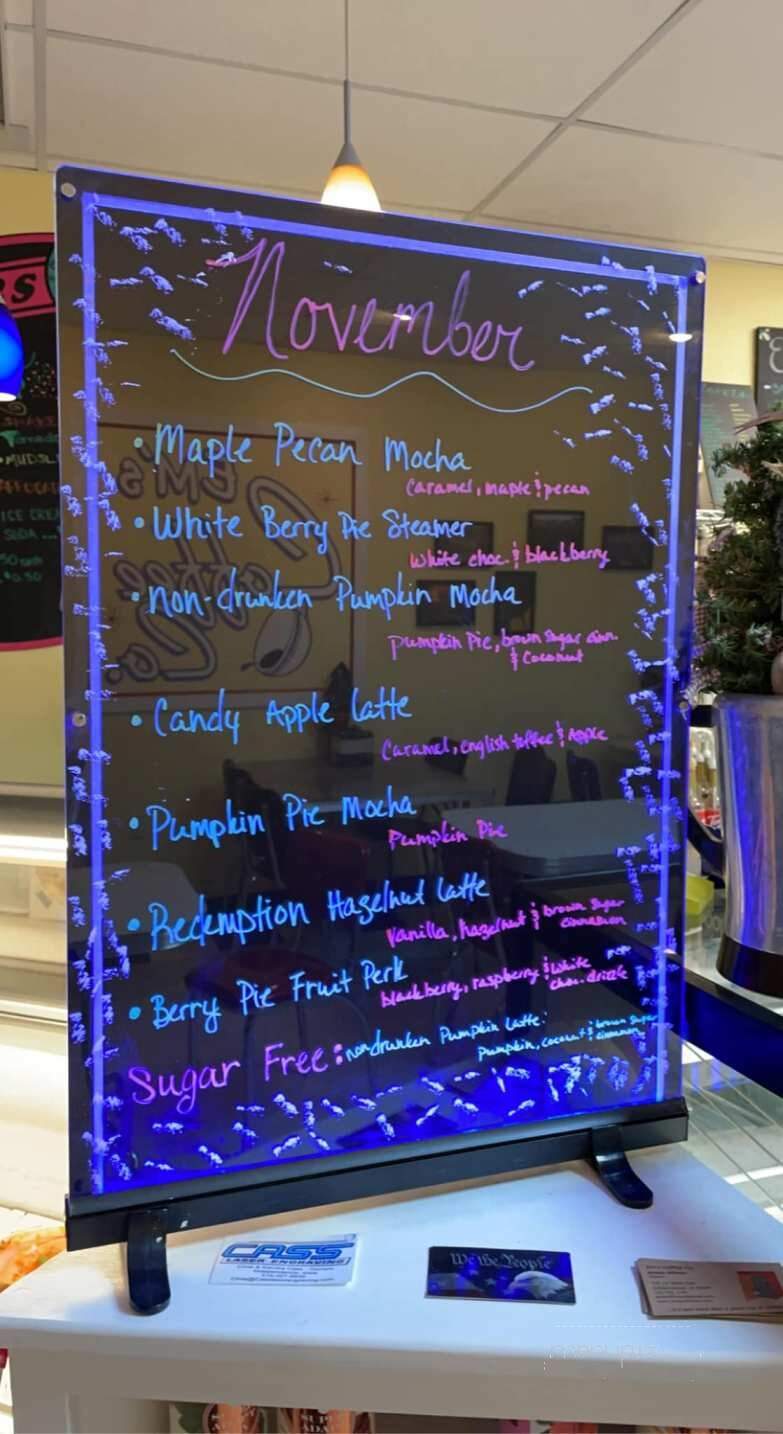 November
• Maple Pecan Mocha
Caramel, maple & pecan
• White Berry Pie Steamer
White choc. & blackberry
• non-drunken Pumpkin Mocha
pumpkin Pie, brown sugar cinn.
& Coconut
• Candy Apple Latte
Caramel, english toffee & Apple
• Pumpkin Pie Mocha
Pumpkin Pie
• Redemption Hazelnut Latte
Vanilla, hazelnut & brown sugar
cinnamon
• Berry Pie Fruit Perk
blackberry, raspberry & White
choc. drizzle
Sugar Free: nondrunken Pumpkin Latte:
pumpkin, coconut & brown sugar
cinnamon
CASS
LASER ENGRAVING
We the People